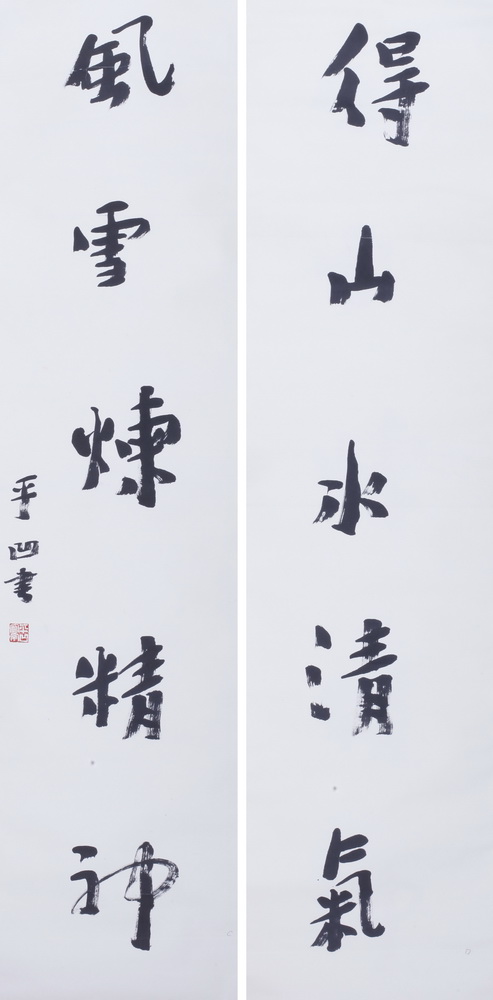 得山水清氣
風雪煉精神
平凹書